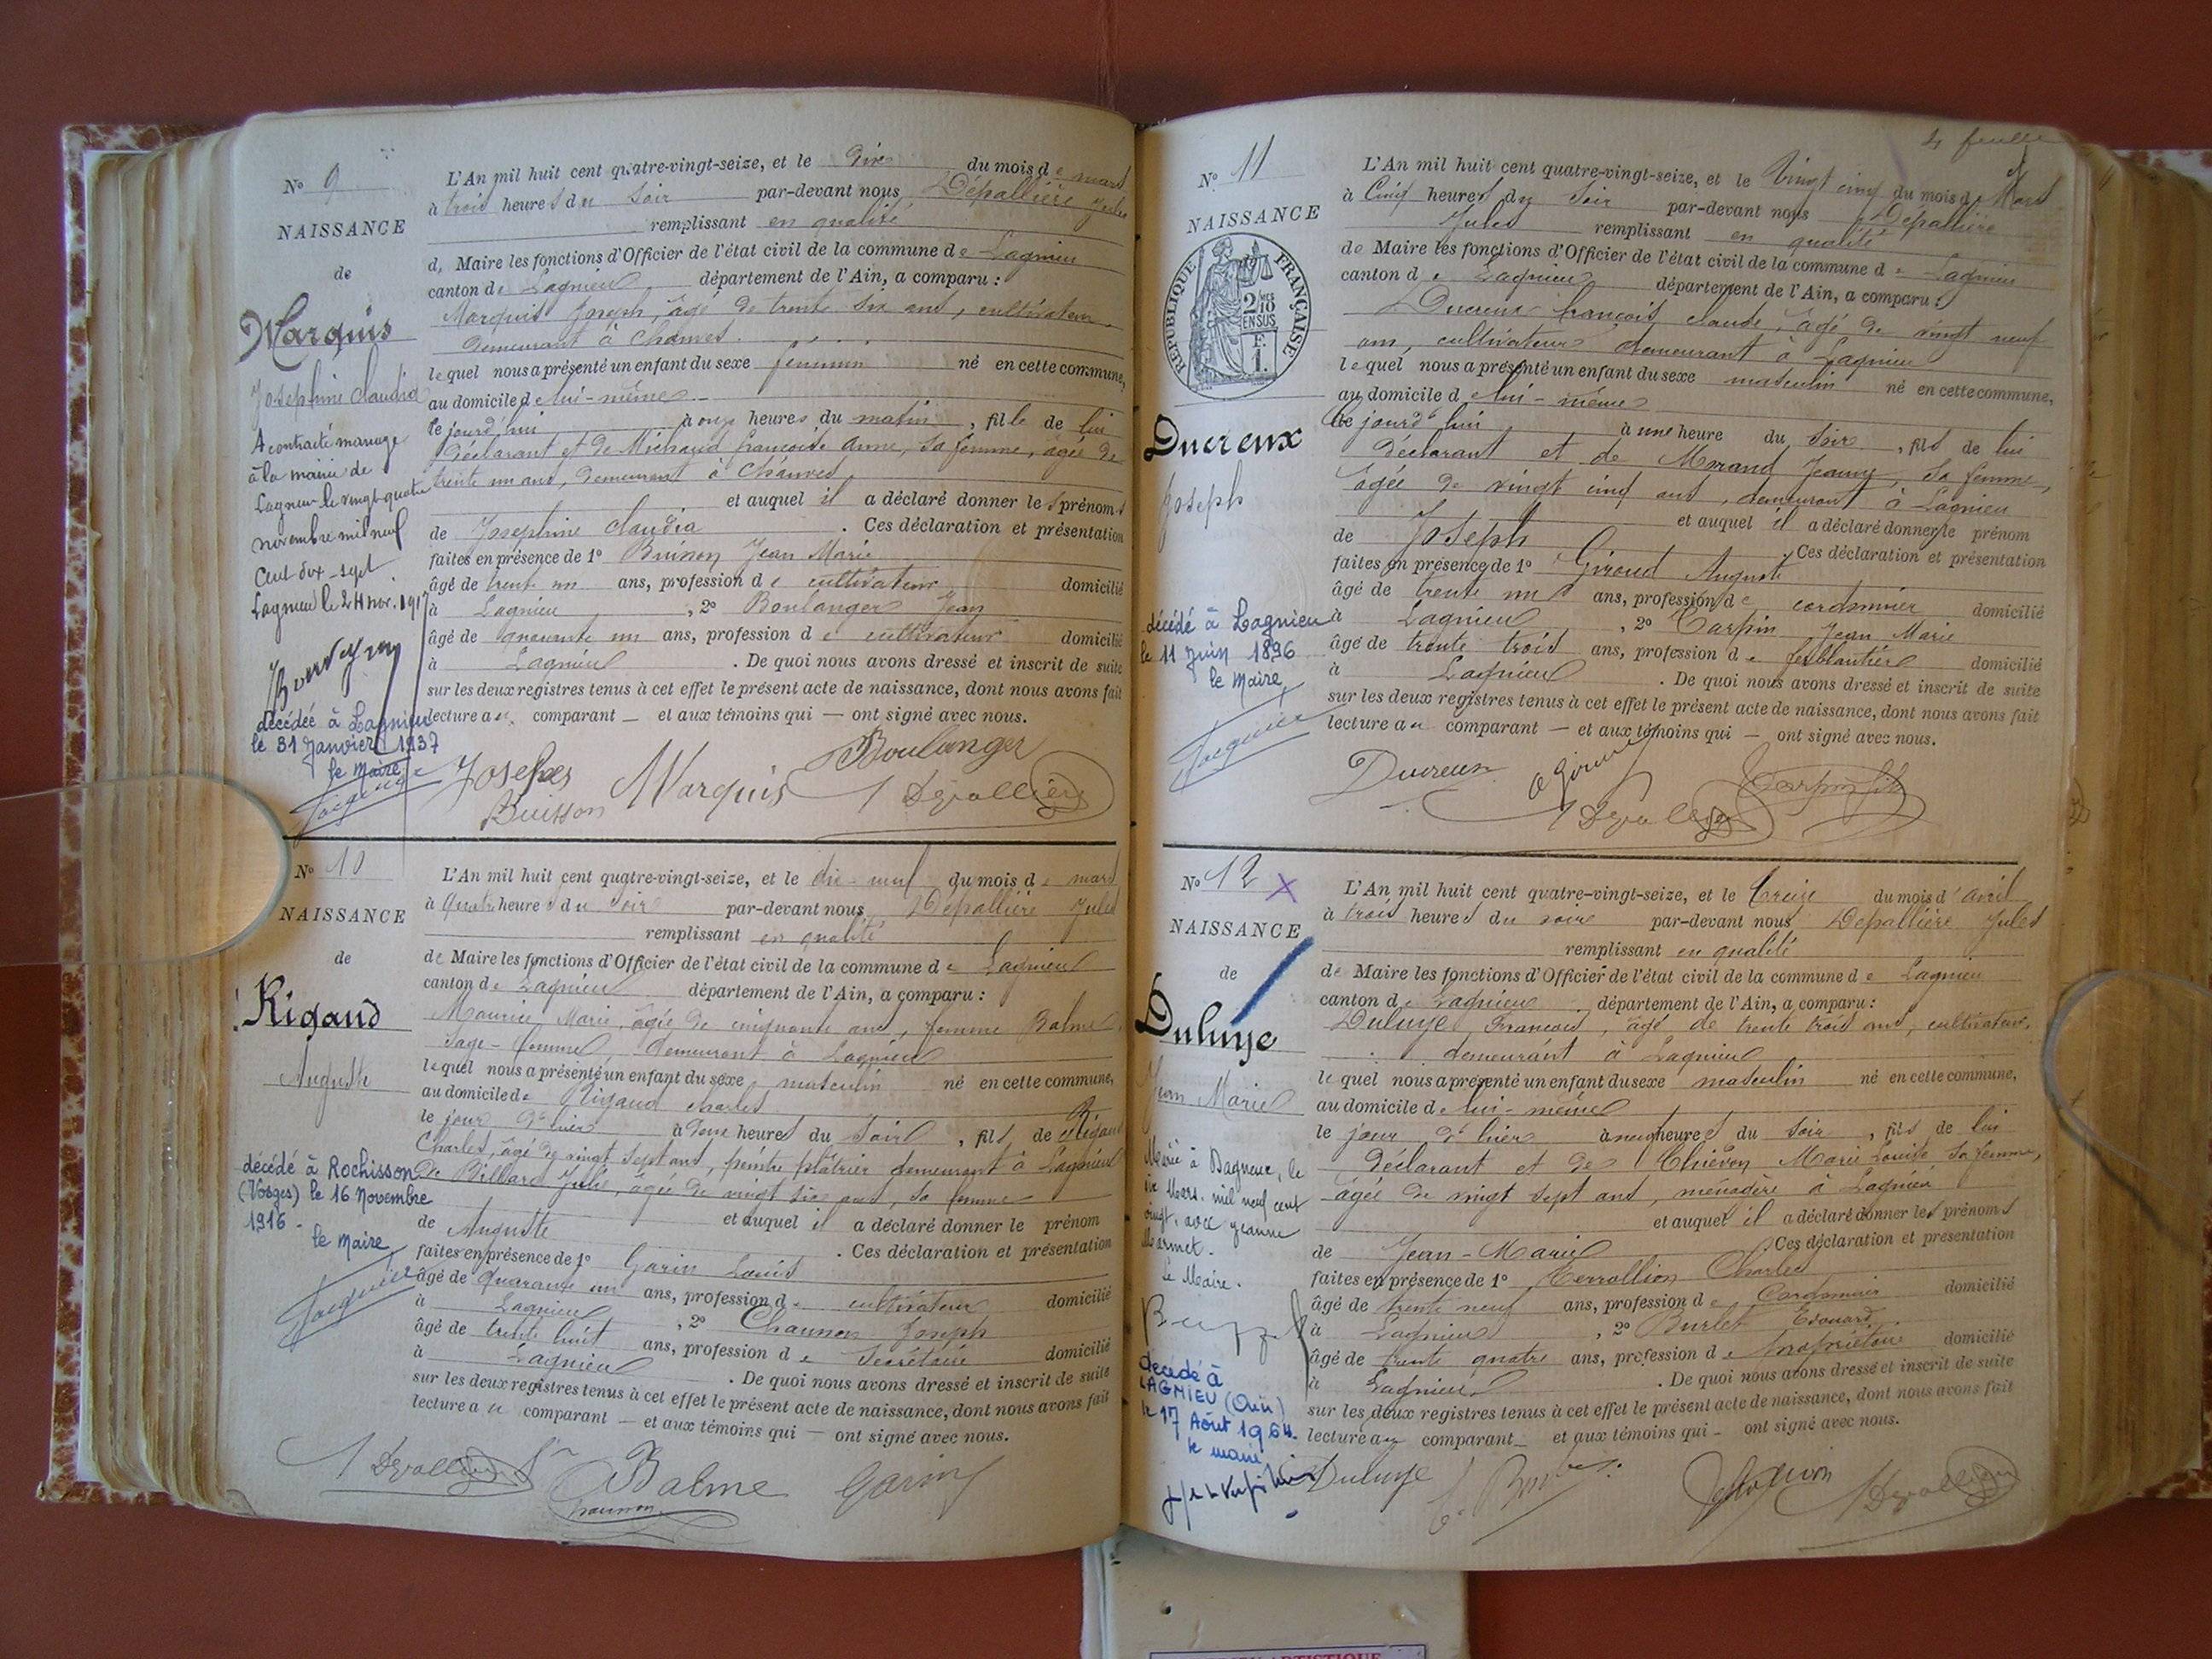 Nº 9
NAISSANCE
de
Marquis
Joséphine Claudia
A contracté mariage
à la mairie de
Lagnieu le vingt-quatre
novembre mil neuf
cent dix-sept
Lagnieu le 24 nov. 1917
décédée à Lagnieu
le 31 Janvier 1937
le Maire
L'An mil huit cent quatre-vingt-seize, et le dix du mois de mars
à trois heures du soir par-devant nous Dépallière Jules
remplissant en qualité
de Maire les fonctions d'Officier de l'état civil de la commune de Lagnieu
canton de Lagnieu département de l'Ain, a comparu :
Marquis Joseph, âgé de trente six ans, cultivateur
demeurant à Chanves
lequel nous a présenté un enfant du sexe féminin né en cette commune,
au domicile de lui-même
le jourd'hui à onze heures du matin, fille de lui
déclarant et de Michaud françoise Anne, sa femme, âgée de
trente un ans, demeurant à Chanves
et auquel il a déclaré donner les prénoms
de Joséphine Claudia. Ces déclaration et présentation
faites en présence de 1º Buisson Jean Marie
âgé de trente un ans, profession de cultivateur domicilié
à Lagnieu, 2º Boulanger Jean
âgé de quarante un ans, profession de cultivateur domicilié
à Lagnieu. De quoi nous avons dressé et inscrit de suite
sur les deux registres tenus à cet effet le présent acte de naissance, dont nous avons fait
lecture au comparant — et aux témoins qui — ont signé avec nous.
Boulanger
Joseph Marquis
Buisson J Dépallière
Nº 10
NAISSANCE
de
Rigaud
Auguste
décédé à Rochisson
(Vosges) le 16 Novembre
1916 -
le Maire
L'An mil huit cent quatre-vingt-seize, et le dix-neuf du mois de mars
à quatre heures du soir par-devant nous Dépallière Jules
remplissant en qualité
de Maire les fonctions d'Officier de l'état civil de la commune de Lagnieu
canton de Lagnieu département de l'Ain, a comparu :
Maurice Marie, âgée de cinquante ans, femme Balme,
Sage-femme, demeurant à Lagnieu
lequel nous a présenté un enfant du sexe masculin né en cette commune,
au domicile de Rigaud Charles
le jour d'hier à onze heures du soir, fils de Rigaud
Charles, âgé de vingt sept ans, peintre plâtrier demeurant à Lagnieu
De Billard Julie, âgée de vingt six ans, sa femme
et auquel il a déclaré donner le prénom
de Auguste. Ces déclaration et présentation
faites en présence de 1º Garin Louis
âgé de quarante un ans, profession de cultivateur domicilié
à Lagnieu, 2º Chaunon Joseph
âgé de trente huit ans, profession de Secrétaire domicilié
à Lagnieu. De quoi nous avons dressé et inscrit de suite
sur les deux registres tenus à cet effet le présent acte de naissance, dont nous avons fait
lecture au comparant — et aux témoins qui — ont signé avec nous.
J Dépallière Balme Garin
Chaunon
4 feuille
Nº 11
NAISSANCE
REPUBLIQUE FRANÇAISE
2/10 EN SUS
F. 1.
Ducreux
Joseph
décédé à Lagnieu
le 11 Juin 1896
le Maire
L'An mil huit cent quatre-vingt-seize, et le Vingt cinq du mois de Mars
à Cinq heures du soir par-devant nous Dépallière
Jules remplissant en qualité
de Maire les fonctions d'Officier de l'état civil de la commune de Lagnieu
canton de Lagnieu département de l'Ain, a comparu :
Ducreux françois claude, âgé de vingt neuf
ans, cultivateur demeurant à Lagnieu
lequel nous a présenté un enfant du sexe masculin né en cette commune,
au domicile de lui-même
le jourd'hui à une heure du soir, fils de lui
déclarant et de Morand Jeanne, sa femme,
âgée de vingt cinq ans, demeurant à Lagnieu
et auquel il a déclaré donner le prénom
de Joseph Ces déclaration et présentation
faites en présence de 1º Giroud Auguste
âgé de trente un ans, profession de cordonnier domicilié
à Lagnieu, 2º Carpin Jean Marie
âgé de trente trois ans, profession de ferblantier domicilié
à Lagnieu. De quoi nous avons dressé et inscrit de suite
sur les deux registres tenus à cet effet le présent acte de naissance, dont nous avons fait
lecture au comparant — et aux témoins qui — ont signé avec nous.
Ducreux A Giroud Carpin fils
J Dépallière
Nº 12 X
NAISSANCE
de
Duluye
Jean Marie
Marié à Dagneux, le
Mars mil neuf cent
vingt, avec Jeanne
Marmet.
Le Maire.
décédé à
LAGNIEU (Ain)
le 17 Août 1964.
le maire
L'An mil huit cent quatre-vingt-seize, et le treize du mois d'avril
à trois heures du soir par-devant nous Dépallière Jules
remplissant en qualité
de Maire les fonctions d'Officier de l'état civil de la commune de Lagnieu
canton de Lagnieu département de l'Ain, a comparu :
Duluye François, âgé de trente trois ans, cultivateur,
demeurant à Lagnieu
lequel nous a présenté un enfant du sexe masculin né en cette commune,
au domicile de lui-même
le jour d'hier à neuf heures du soir, fils de lui
déclarant et de Thiévon Marie Louise sa femme,
âgée de vingt sept ans, ménagère à Lagnieu
et auquel il a déclaré donner les prénoms
de Jean-Marie Ces déclaration et présentation
faites en présence de 1º Terrollion Charles
âgé de trente neuf ans, profession de Cordonnier domicilié
à Lagnieu, 2º Burlet Edouard
âgé de trente quatre ans, profession de propriétaire domicilié
à Lagnieu. De quoi nous avons dressé et inscrit de suite
sur les deux registres tenus à cet effet le présent acte de naissance, dont nous avons fait
lecture au comparant — et aux témoins qui — ont signé avec nous.
Duluye J Dépallière